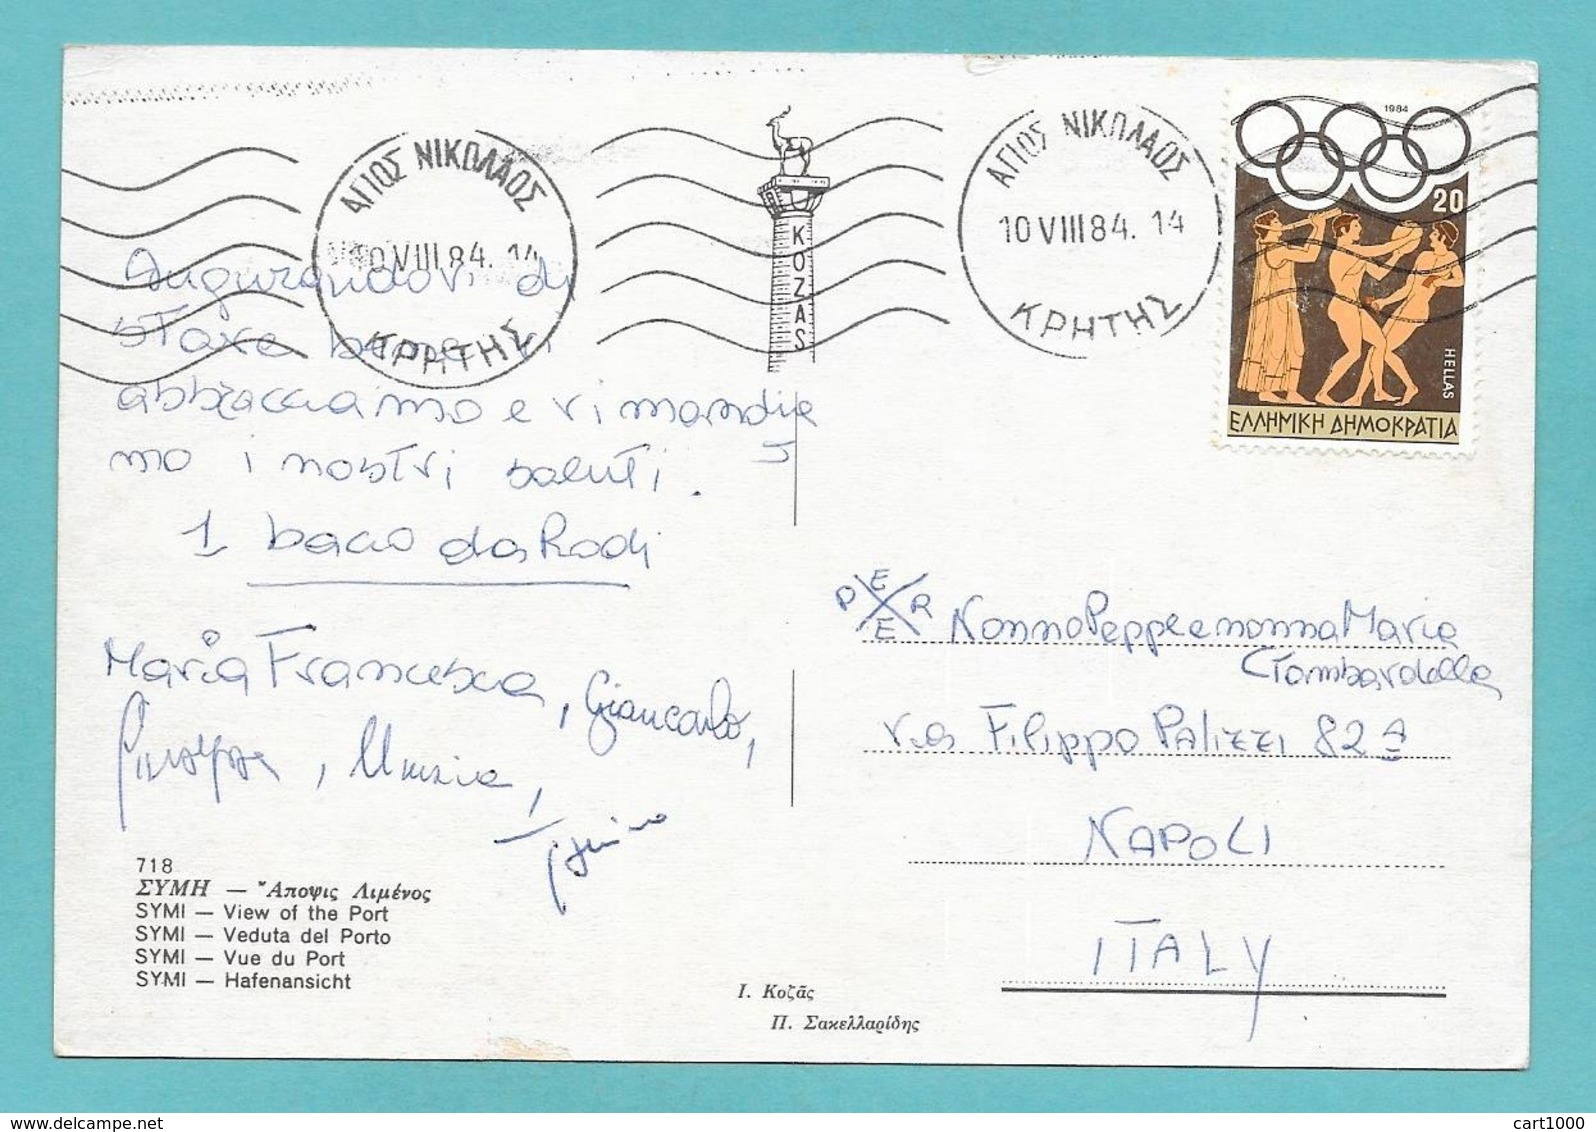 ΑΓΙΟΣ ΝΙΚΟΛΑΟΣ
10 VIII 84. 14
ΚΡΗΤΗΣ
KOZAS
ΑΓΙΟΣ ΝΙΚΟΛΑΟΣ
10 VIII 84. 14
ΚΡΗΤΗΣ
1984
20
HELLAS
ΕΛΛΗΝΙΚΗ ΔΗΜΟΚΡΑΤΙΑ
Augurandovi di
stare bene vi
abbracciamo e vi mandia
mo i nostri saluti.
1 bacio da Rodi
Maria Francesca, Giancarlo,
Giuseppe, Nunzia,
718
ΣΥΜΗ — Ἄποψις Λιμένος
SYMI — View of the Port
SYMI — Veduta del Porto
SYMI — Vue du Port
SYMI — Hafenansicht
Ι. Κοζᾶς
Π. Σακελλαρίδης
PER
E
Nonno Peppe e nonna Maria
Tombardella
via Filippo Palizzi 82 A
NAPOLI
ITALY
www.delcampe.net
cart1000